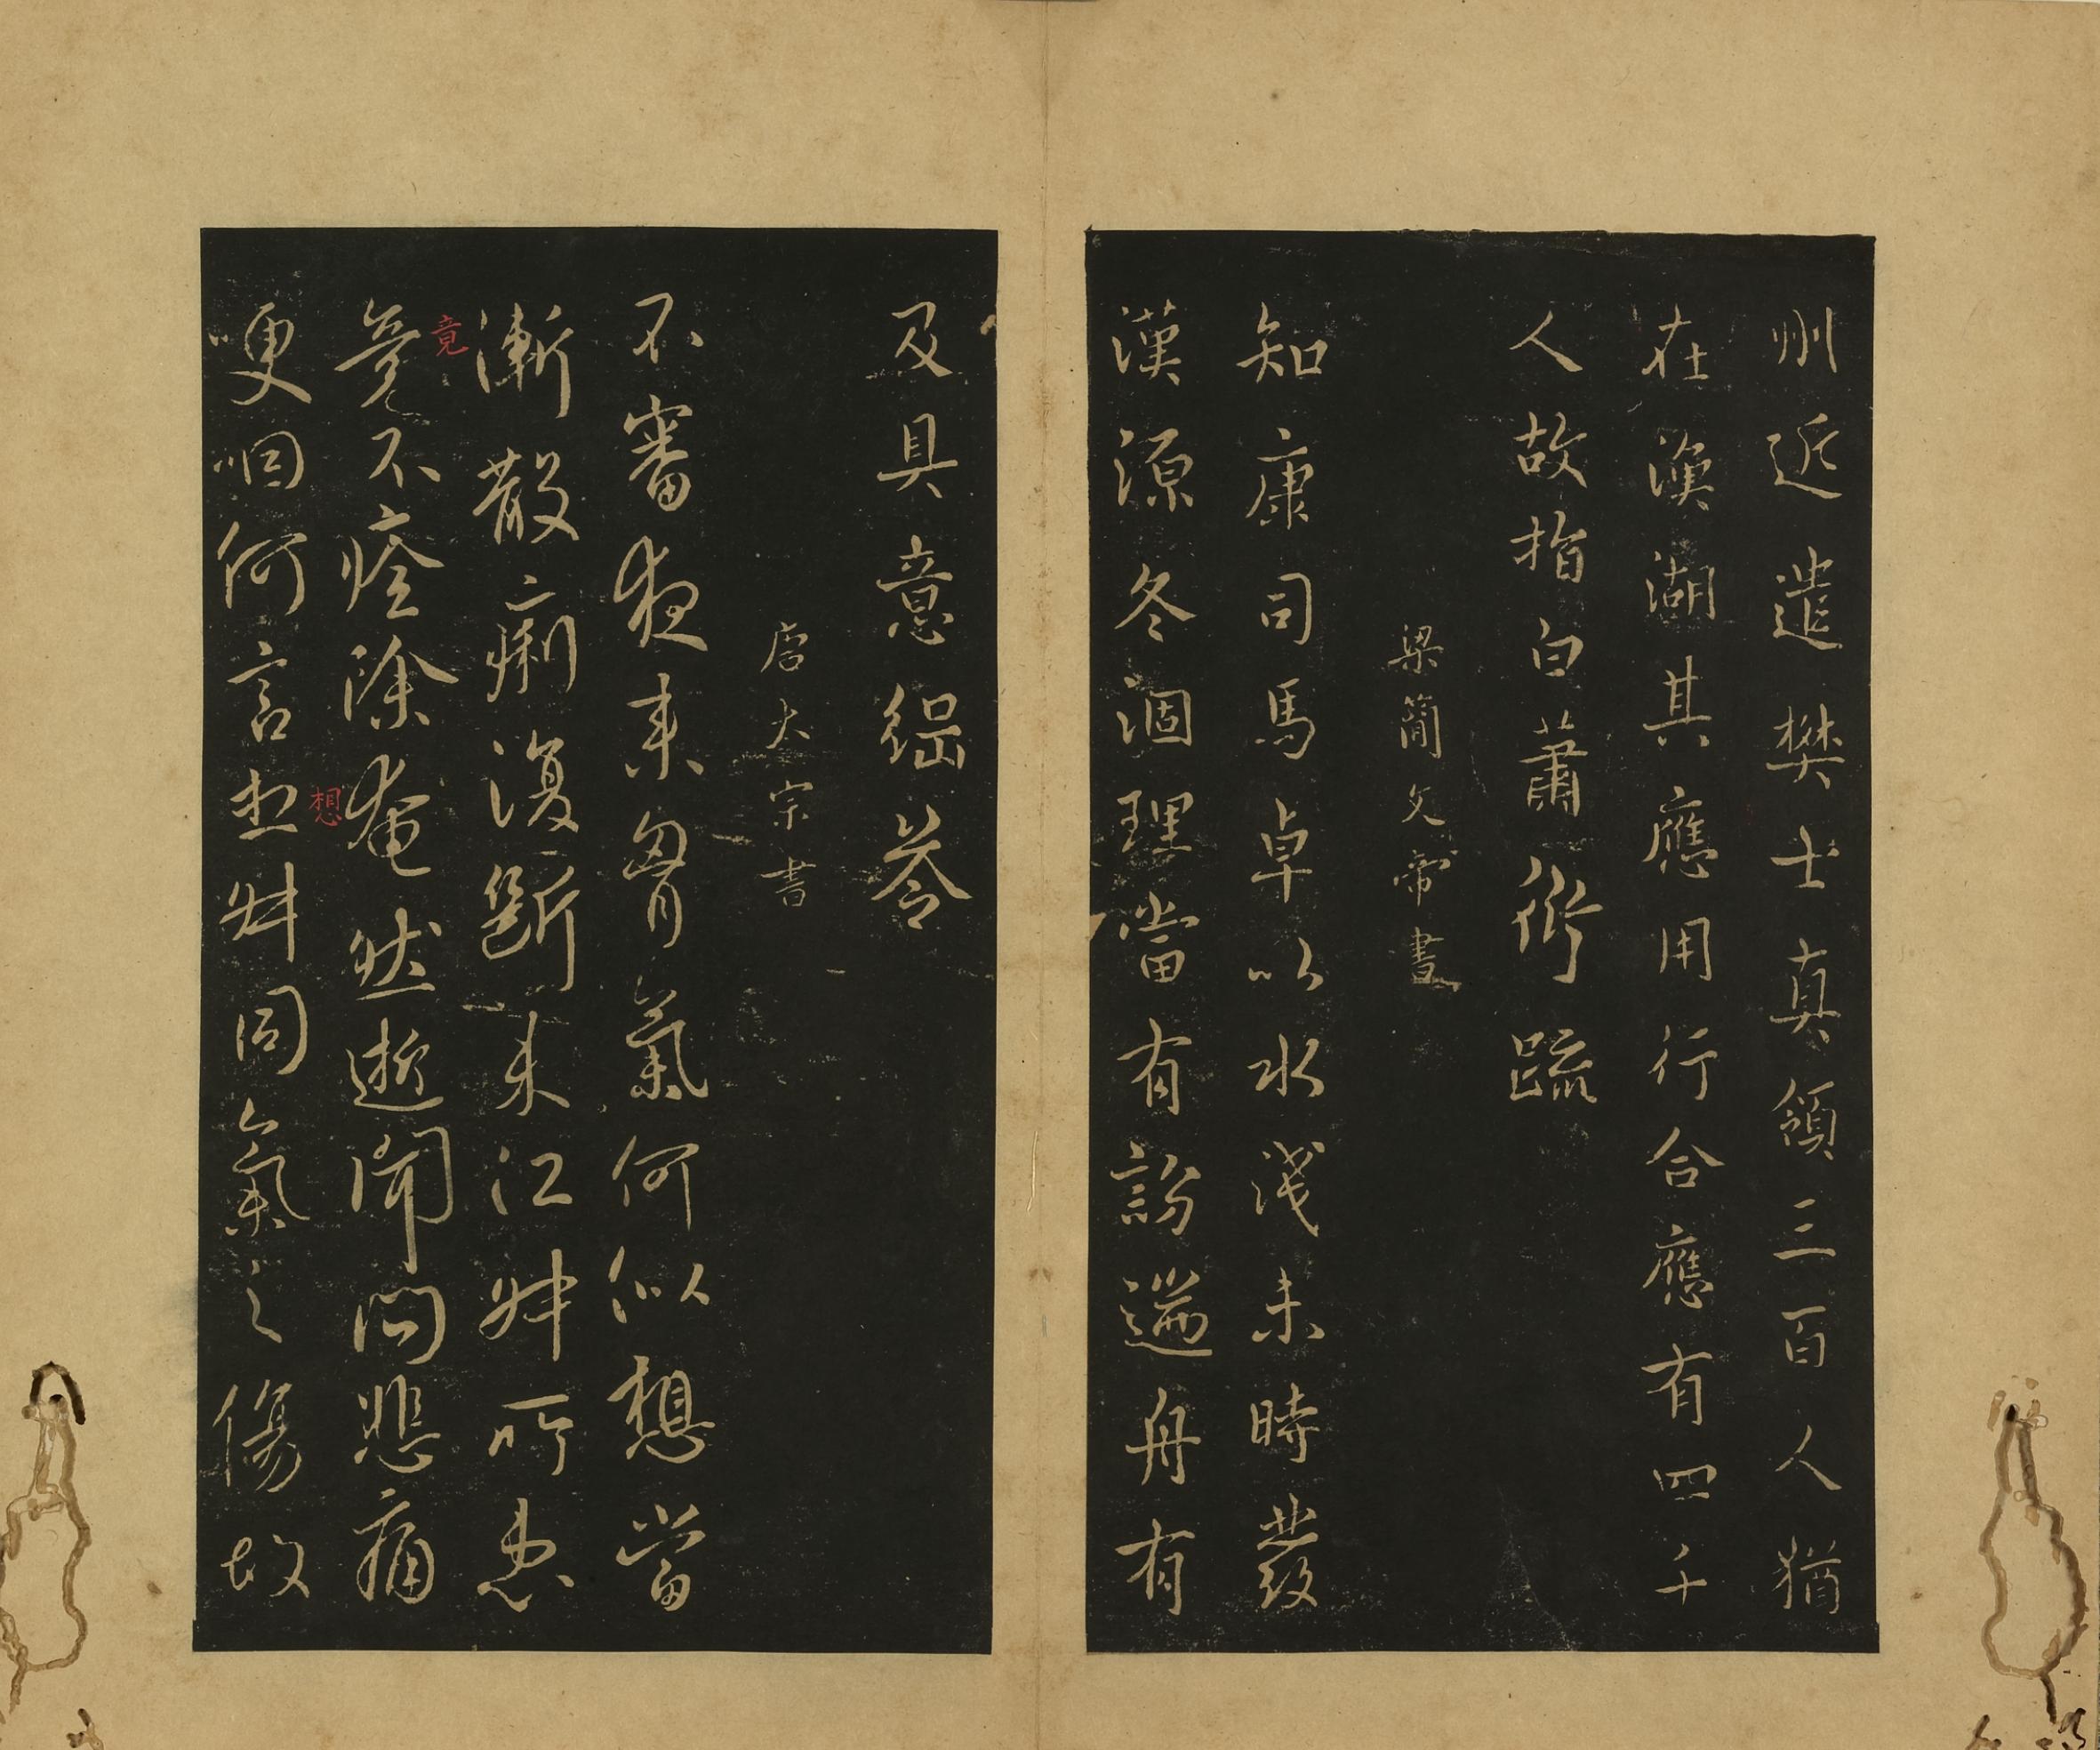 州近遣樊士真領三百人猶
在渙湖其應用行合應有四千
人故指白蕭衍疏
梁簡文帝書
知康司馬卓以水淺未時發
漢源冬涸理當有詶遄舟有
及具意綱答
唐太宗書
不審夜來胷氣何似想當
漸散痢復斷未江叔所患
竟
竟不痊除奄然逝聞問悲痛
想
哽咽何言想叔同氣之傷故